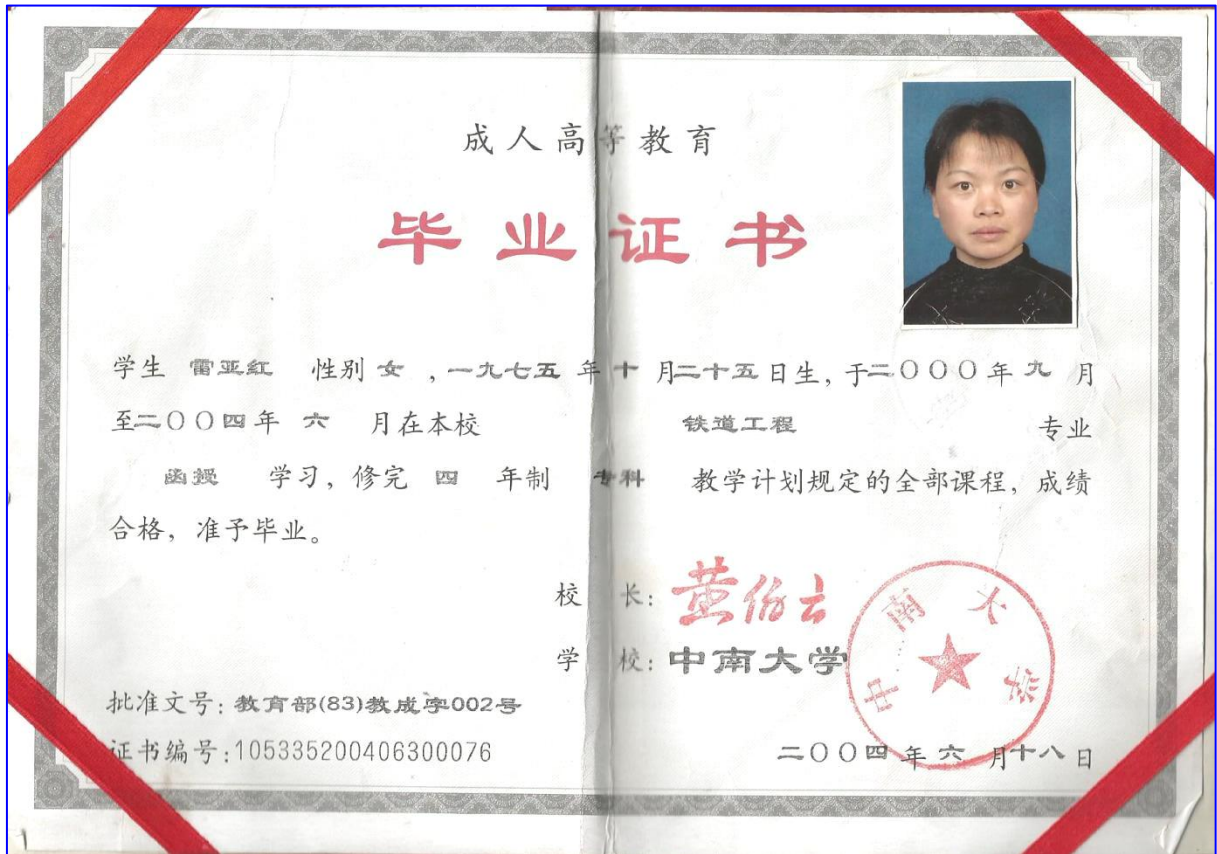 成人高等教育
毕业证书
学生 雷亚红 性别 女 ,一九七五 年 十 月二十五 日生, 于二〇〇〇年 九 月
至二〇〇四年 六 月在本校 铁道工程 专业
函授 学习, 修完 四 年制 专科 教学计划规定的全部课程, 成绩
合格, 准予毕业。
校 长: 黄伯云
学 校: 中南大学
中南大学
批准文号: 教育部(83)教成字002号
证书编号:105335200406300076
二〇〇四 年 六 月十八 日